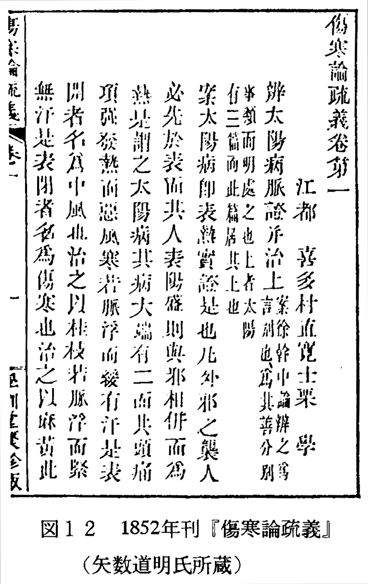 傷寒論疏義卷第一
江都 喜多村直寬士栗 學
辨太陽病脈證并治上
案徐幹中論辨之為
言別也為其善分別
事類而明處之也上者太陽
有三篇而此篇居其上也
案太陽病卽表熱實證是也凡外邪之襲人
必先於表而其人表陽盛則與邪相併而為
熱是謂之太陽病其病大端有二而其頭痛
項强發熱而惡風寒若脈浮而緩有汗是表
開者名為中風也治之以桂枝若脈浮而緊
無汗是表閉者名為傷寒也治之以麻黃此
傷寒論疏義 卷一 一 學訓堂聚珍版
図12 1852年刊『傷寒論疏義』
(矢数道明氏所蔵)